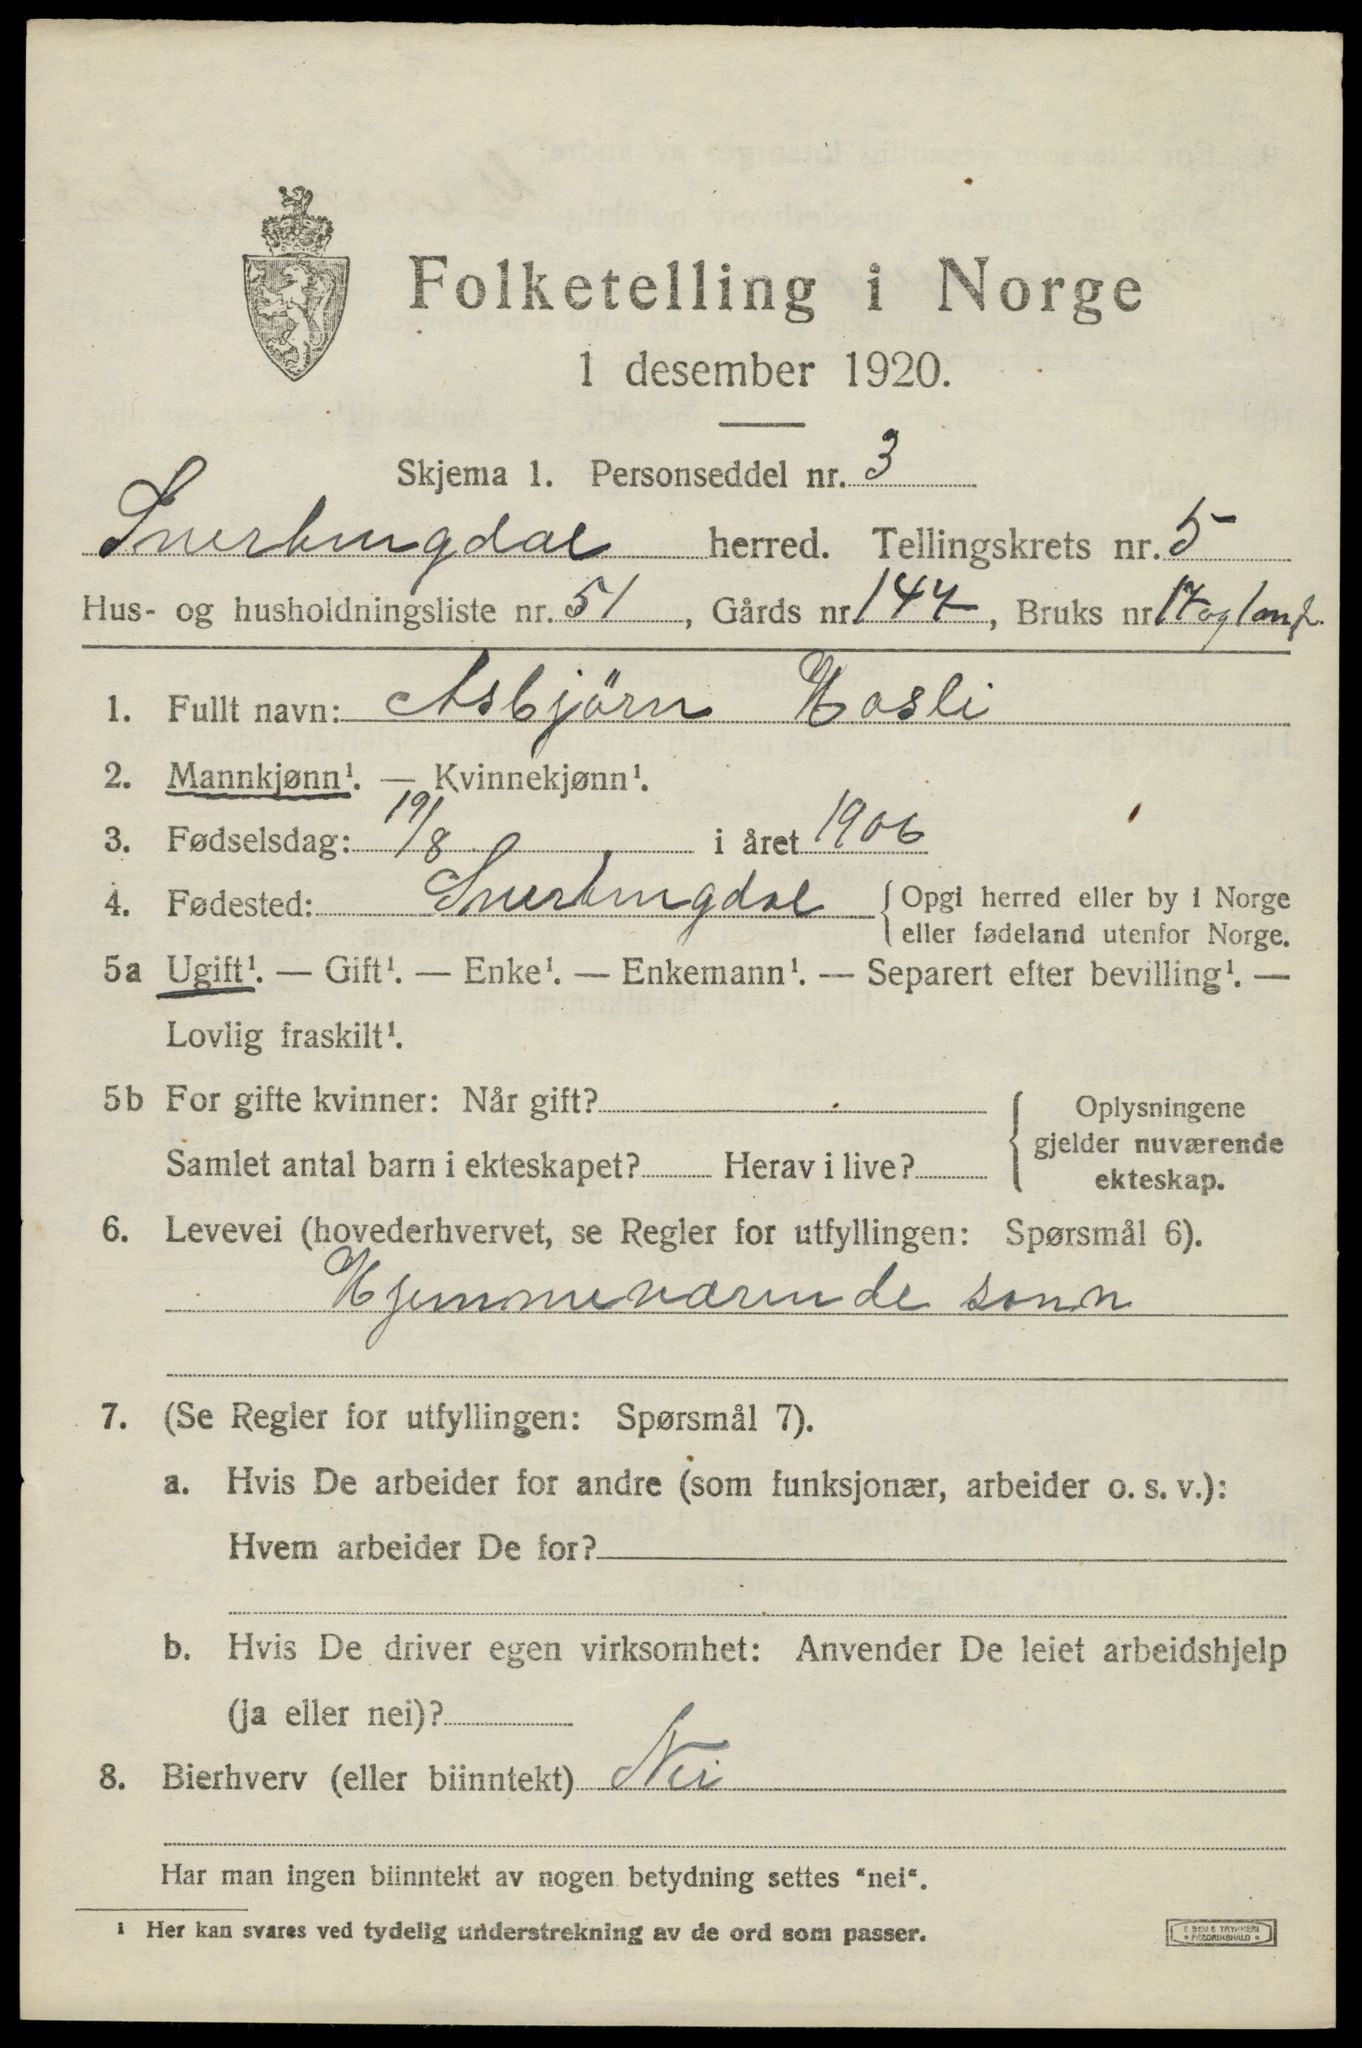 Folketelling i Norge
1 desember 1920.
Skjema 1. Personseddel nr. 3
Snertingdal herred. Tellingskrets nr. 5
Hus- og husholdningsliste nr. 51, Gårds nr 147, Bruks nr 17 og
1. Fullt navn: Asbjörn Hasli
2. Mannkjønn¹. — Kvinnekjønn¹.
3. Fødselsdag: 19/8 i året 1906
4. Fødested: Snertingdal { Opgi herred eller by i Norge
eller fødeland utenfor Norge.
5a Ugift¹. — Gift¹. — Enke¹. — Enkemann¹. — Separert efter bevilling¹. —
Lovlig fraskilt¹.
5b For gifte kvinner: Når gift?
Samlet antal barn i ekteskapet? Herav i live?
{ Oplysningene
gjelder nuværende
ekteskap.
6. Levevei (hovederhvervet, se Regler for utfyllingen: Spørsmål 6).
Hjemmeværende sønn
7. (Se Regler for utfyllingen: Spørsmål 7).
a. Hvis De arbeider for andre (som funksjonær, arbeider o. s. v.):
Hvem arbeider De for?
b. Hvis De driver egen virksomhet: Anvender De leiet arbeidshjelp
(ja eller nei)?
8. Bierhverv (eller biinntekt) Nei
Har man ingen biinntekt av nogen betydning settes "nei".
¹ Her kan svares ved tydelig understrekning av de ord som passer.
E. SEM'S TRYKKERI
* FREDRIKSHALD *